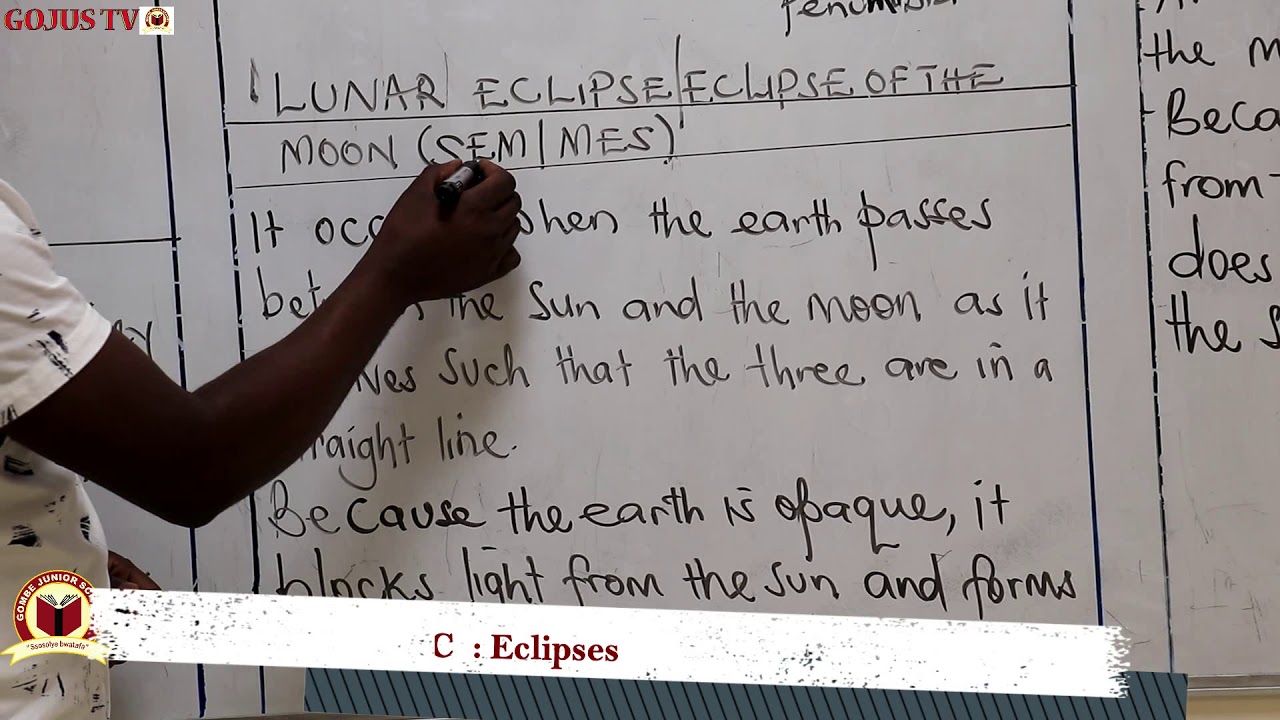 GOJUS TV
LUNAR ECLIPSE/ECLIPSE OF THE
MOON (SEM/MES)
It when the earth passes
the sun and the moon as it
such that the three are in a
line.
Because the earth is opaque, it
blocks light from the sun and forms
the
Beca
from
does
the s
GOMBE JUNIOR SC
"Ssosolye bwatafa"
C : Eclipses